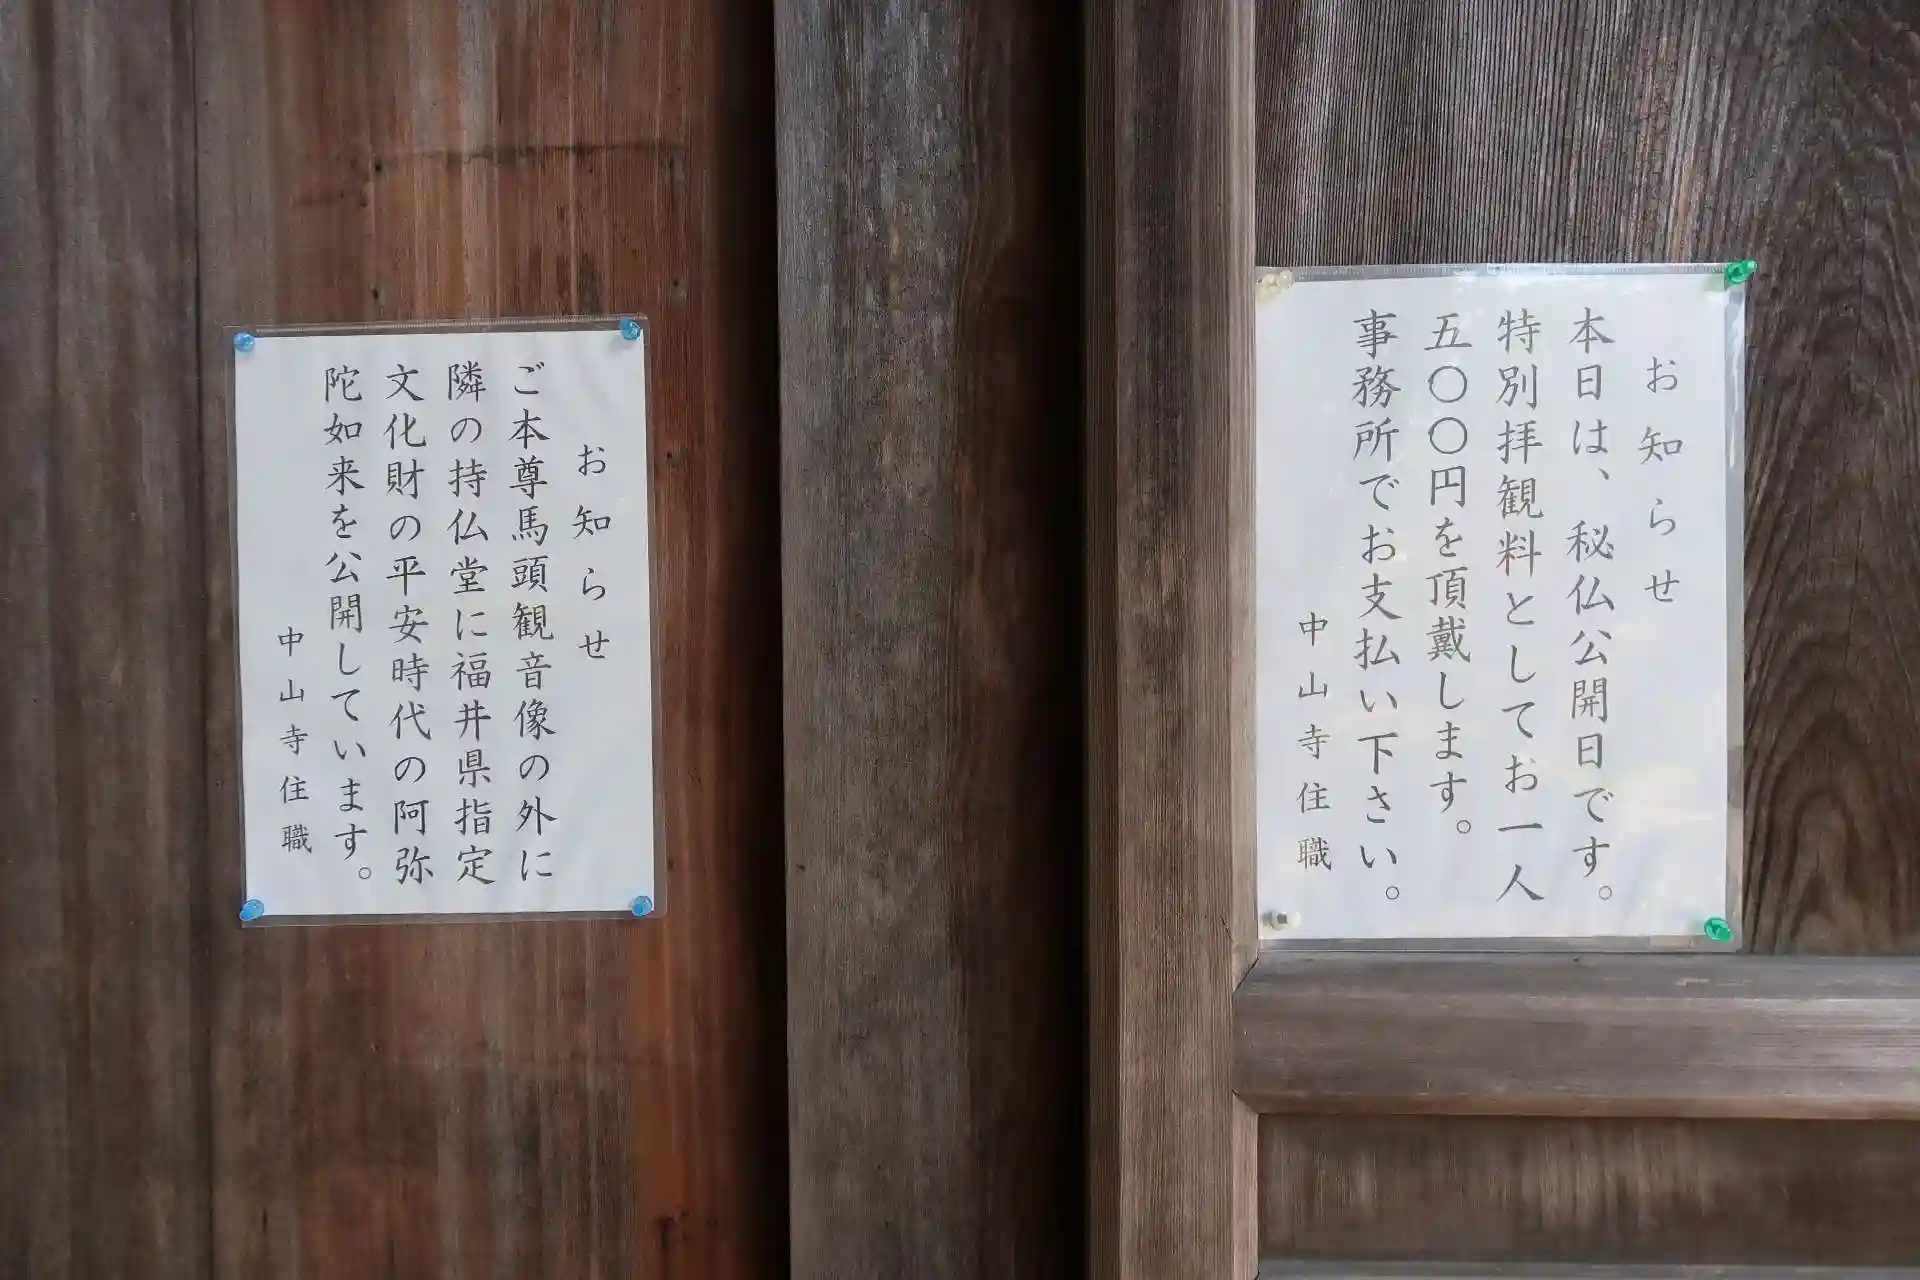 お知らせ
本日は、秘仏公開日です。
特別拝観料としてお一人
五〇〇円を頂戴します。
事務所でお支払い下さい。
中山寺住職
お知らせ
ご本尊馬頭観音像の外に
隣の持仏堂に福井県指定
文化財の平安時代の阿弥
陀如来を公開しています。
中山寺住職